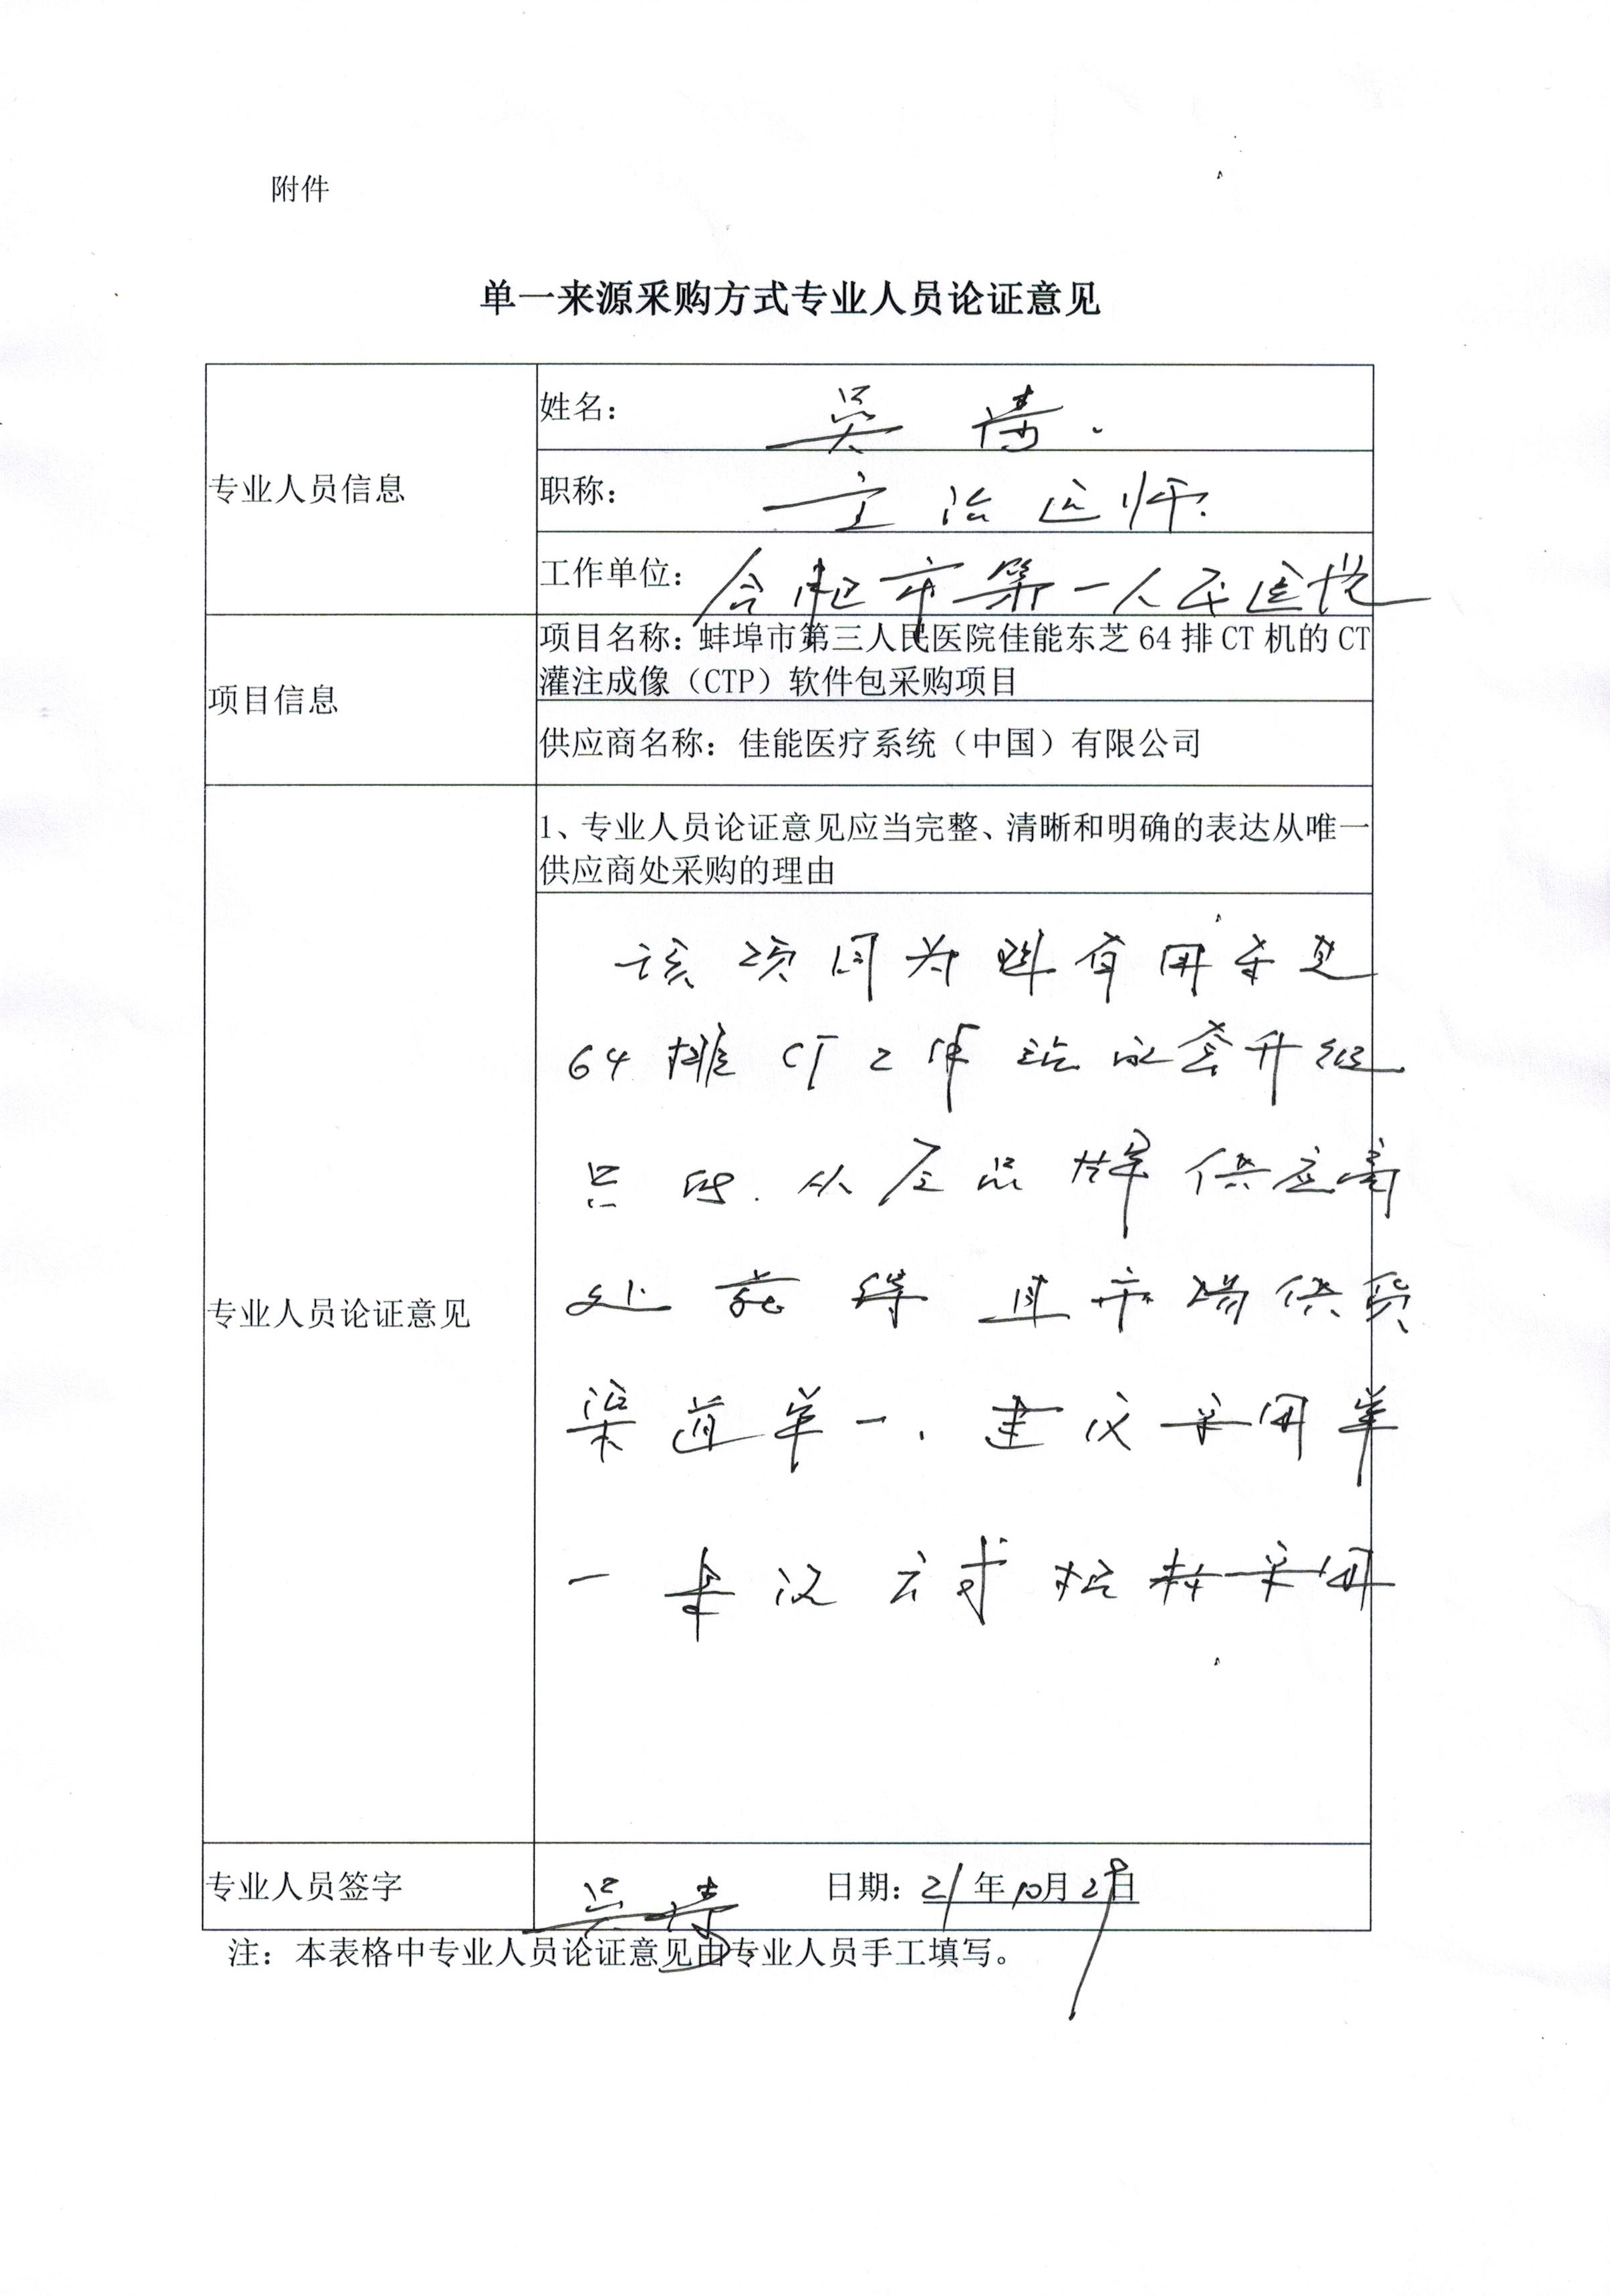 附件
单一来源采购方式专业人员论证意见
专业人员信息
姓名：吴
职称：主治医师
工作单位：合肥市第一人民医院
项目信息
项目名称：蚌埠市第三人民医院佳能东芝64排CT机的CT
灌注成像（CTP）软件包采购项目
供应商名称：佳能医疗系统（中国）有限公司
专业人员论证意见
1、专业人员论证意见应当完整、清晰和明确的表达从唯一
供应商处采购的理由
该项目为现有东芝
64排CT工作站配套升级
只能从原品牌供应商
处获得且市场供货
渠道单一，建议采用单
一来源方式
专业人员签字
吴
日期：21年10月29日
注：本表格中专业人员论证意见由专业人员手工填写。